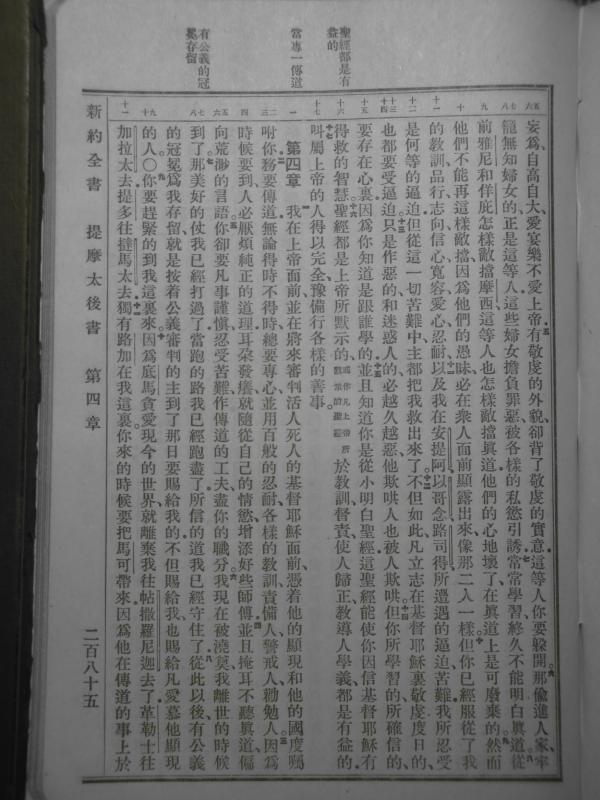 聖經都是有
益的
當專一傳道
有公義的冠
冕存留
妄爲、自高自大、愛宴樂不愛上帝、有敬虔的外貌、卻背了敬虔的實意、這等人你要躱開、那偸進人家、牢
籠無知婦女的、正是這等人、這些婦女擔負罪惡、被各樣的私慾引誘、常常學習、終久不能明白眞道、從
前雅尼和佯庇、怎樣敵擋摩西、這等人也怎樣敵擋眞道、他們的心地壞了、在眞道上是可廢棄的、然而
他們不能再這樣敵擋、因爲他們的愚昧、必在衆人面前顯露出來、像那二人一樣、但你已經服從了我
的教訓品行、志向、信心、寬容、愛心、忍耐、以及我在安提阿、以哥念、路司得、所遭遇的逼迫苦難、我所忍受
是何等的逼迫、但從這一切苦難中、主都把我救出來了、不但如此、凡立志在基督耶穌裏敬虔度日的、
也都要受逼迫、只是作惡的和迷惑人的、必越久越惡、他欺哄人、也被人欺哄、但你所學習的、所確信的、
要存在心裏、因爲你知道是跟誰學的、並且知道你是從小明白聖經、這聖經能使你因信基督耶穌、有
得救的智慧、聖經都是上帝所默示的、或作凡上帝所默示的聖經於教訓督責、使人歸正、教導人學義、都是有益的、
叫屬上帝的人、得以完全、豫備行各樣的善事。
第四章 我在上帝面前、並在將來審判活人死人的基督耶穌面前、憑着他的顯現和他的國度囑
咐你、務要傳道、無論得時不得時、總要專心、並用百般的忍耐、各樣的教訓、責備人、警戒人、勸勉人、因爲
時候要到、人必厭煩純正的道理、耳朵發癢、就隨從自己的情慾、增添好些師傅、並且掩耳不聽眞道、偏
向荒渺的言語、你卻要凡事謹愼、忍受苦難、作傳道的工夫、盡你的職分、我現在被澆奠、我離世的時候
到了、那美好的仗我已經打過了、當跑的路我已經跑盡了、所信的道我已經守住了、從此以後、有公義
的冠冕爲我存留、就是按着公義審判的主、到了那日要賜給我的、不但賜給我、也賜給凡愛慕他顯現
的人○你要趕緊的到我這裏來、因爲底馬貪愛現今的世界、就離棄我往帖撒羅尼迦去了、革勒士往
加拉太去、提多往撻馬太去、獨有路加在我這裏、你來的時候、要把馬可帶來、因爲他在傳道的事上於
新約全書 提摩太後書 第四章 二百八十五